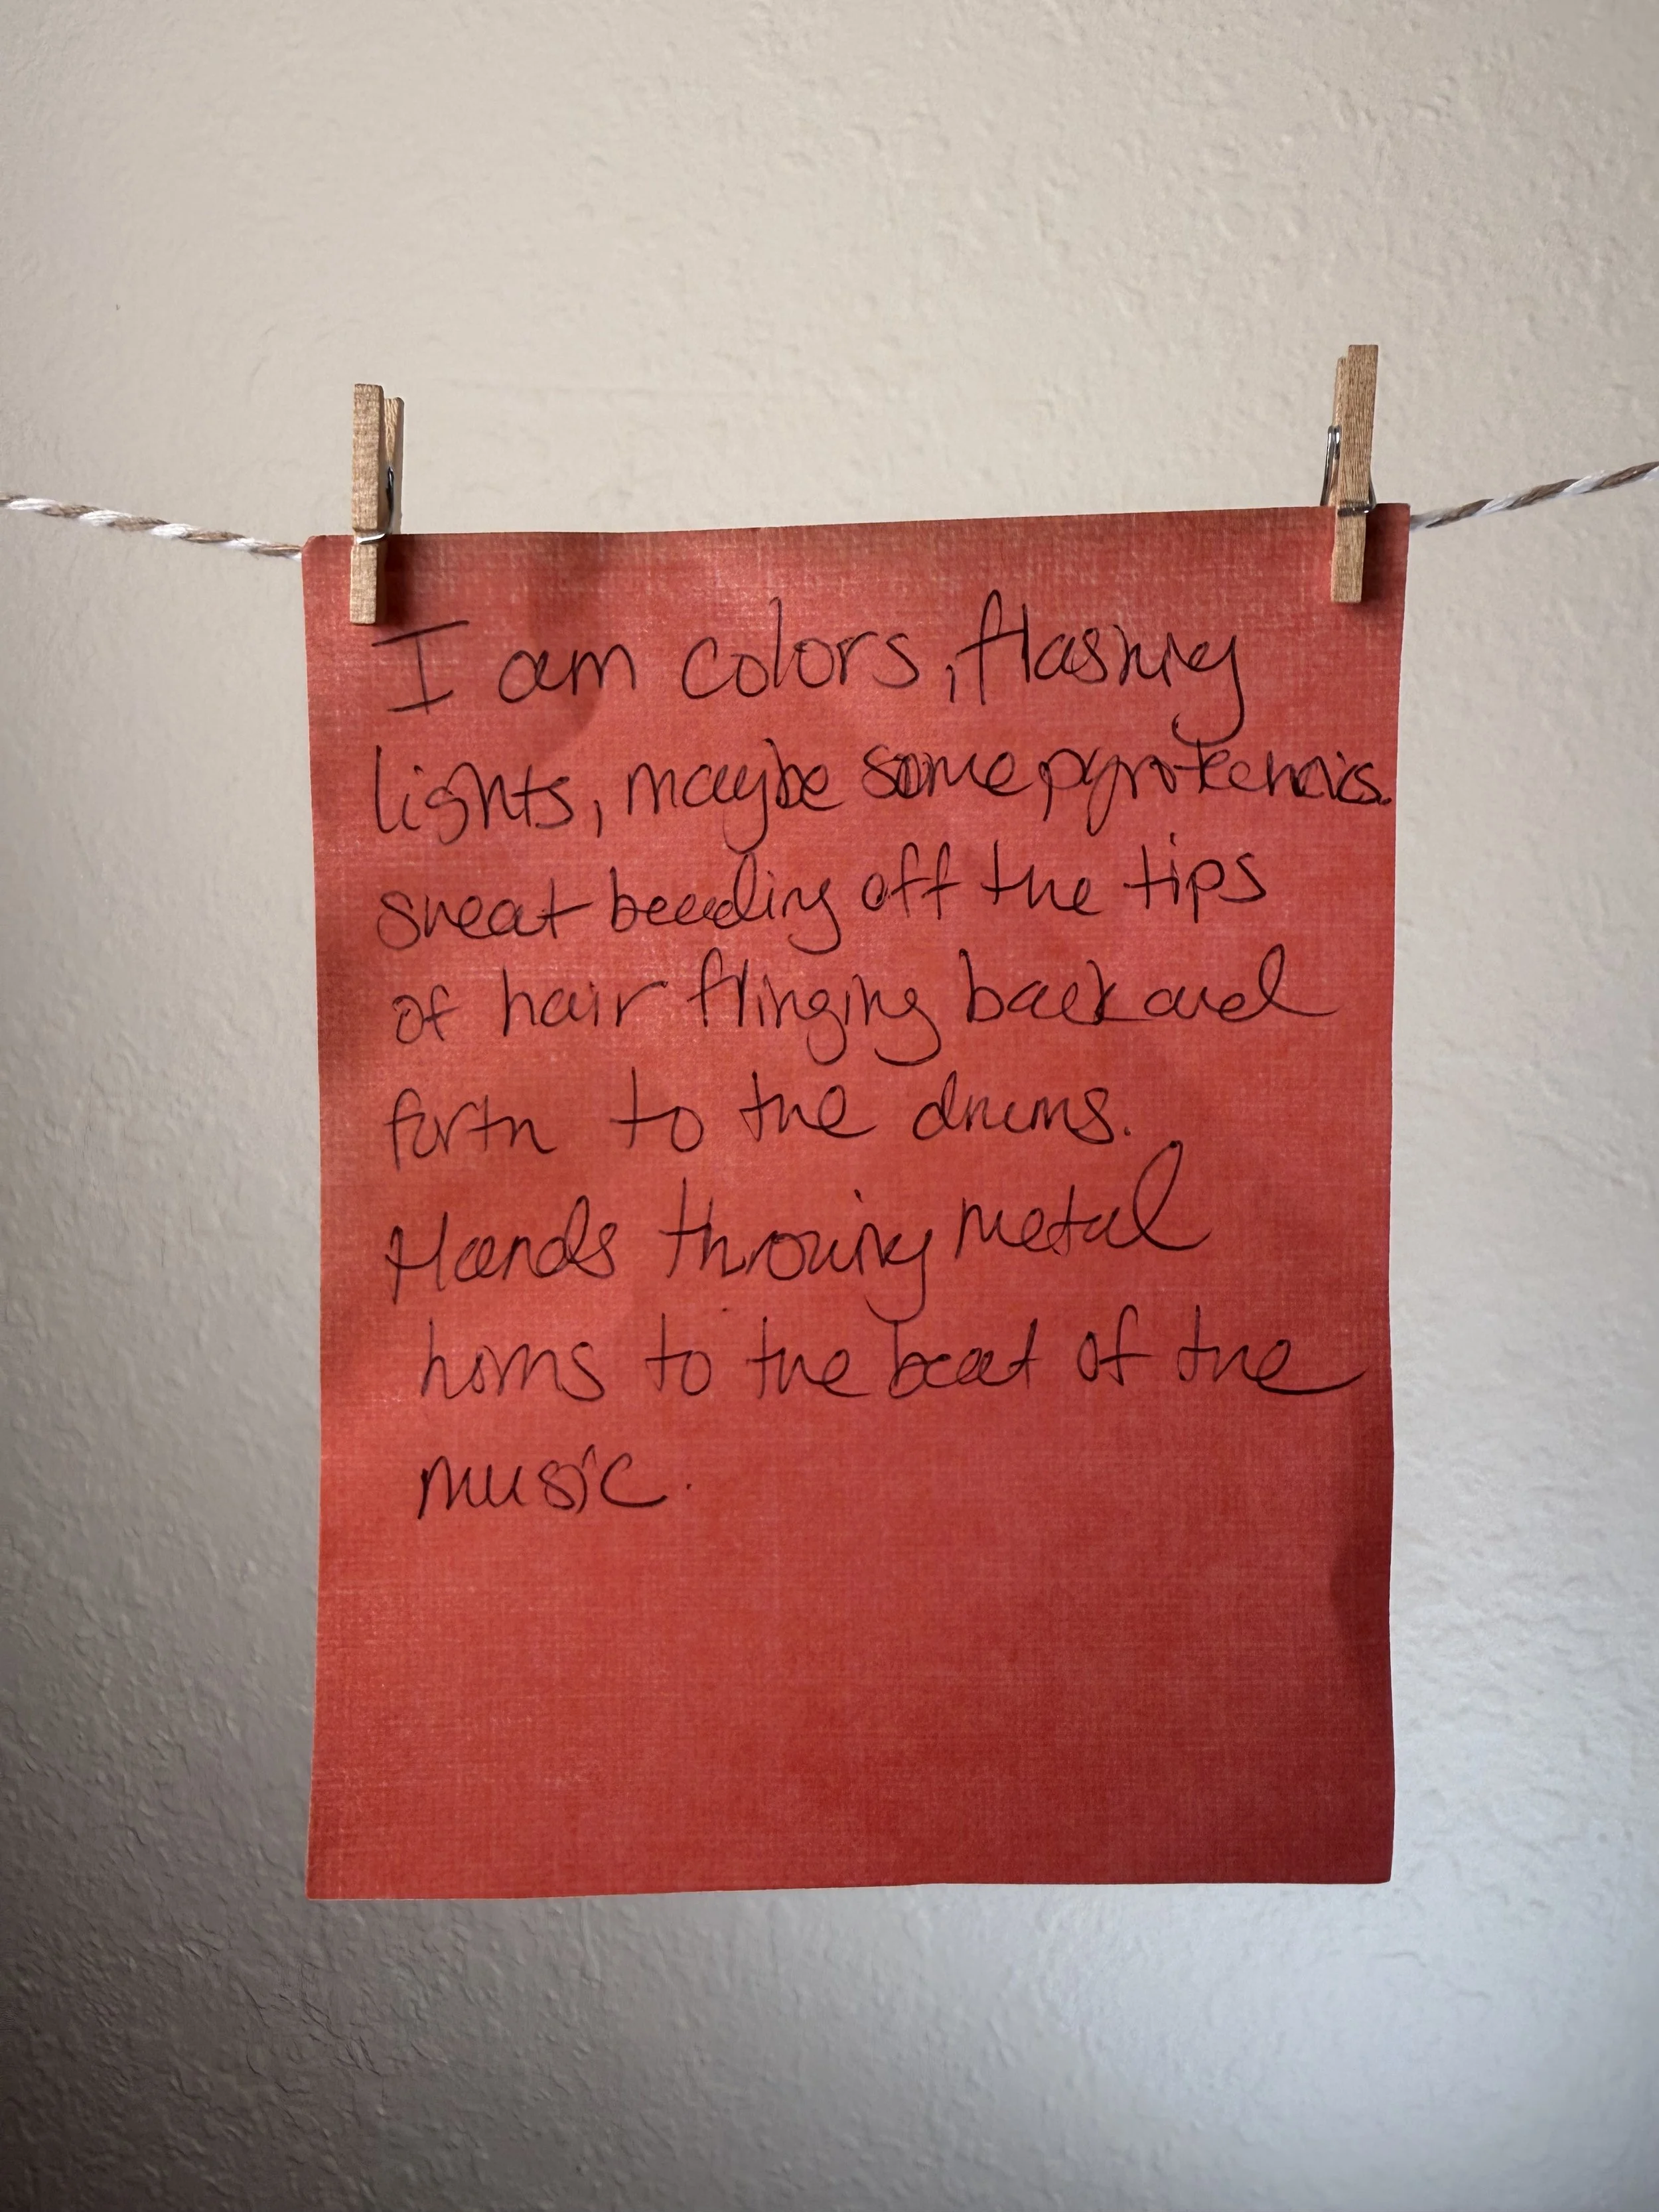 I am colors, flashing
lights, maybe some pyrotechnics.
sweat beading off the tips
of hair flinging back and
forth to the drums.
Hands throwing metal
horns to the beat of the
music.